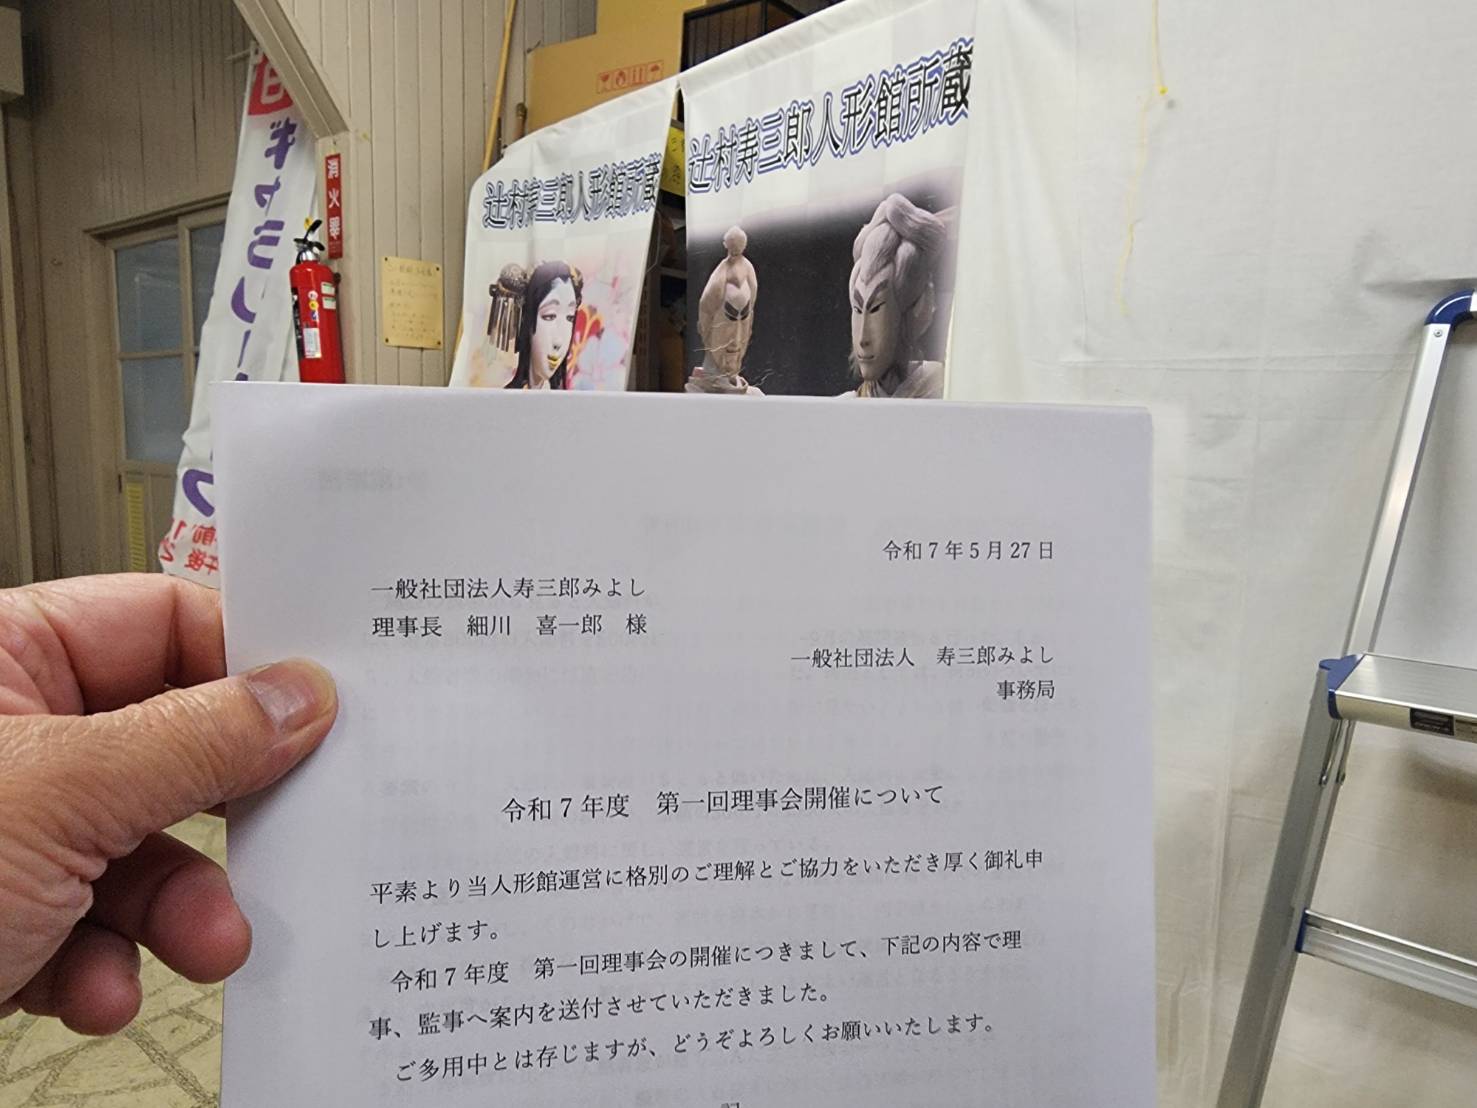 ギャラリー
消火器
辻村寿三郎人形館所蔵
辻村寿三郎人形館所蔵
令和7年5月27日
一般社団法人寿三郎みよし
理事長　細川　喜一郎　様
一般社団法人　寿三郎みよし
事務局
令和7年度　第一回理事会開催について
平素より当人形館運営に格別のご理解とご協力をいただき厚く御礼申
し上げます。
令和7年度　第一回理事会の開催につきまして、下記の内容で理
事、監事へ案内を送付させていただきました。
ご多用中とは存じますが、どうぞよろしくお願いいたします。